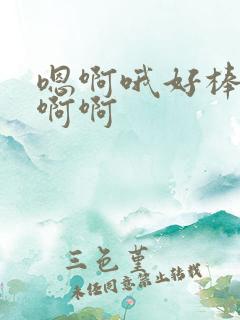 嗯啊哦好棒
啊啊
三色堇
未经同意禁止转载